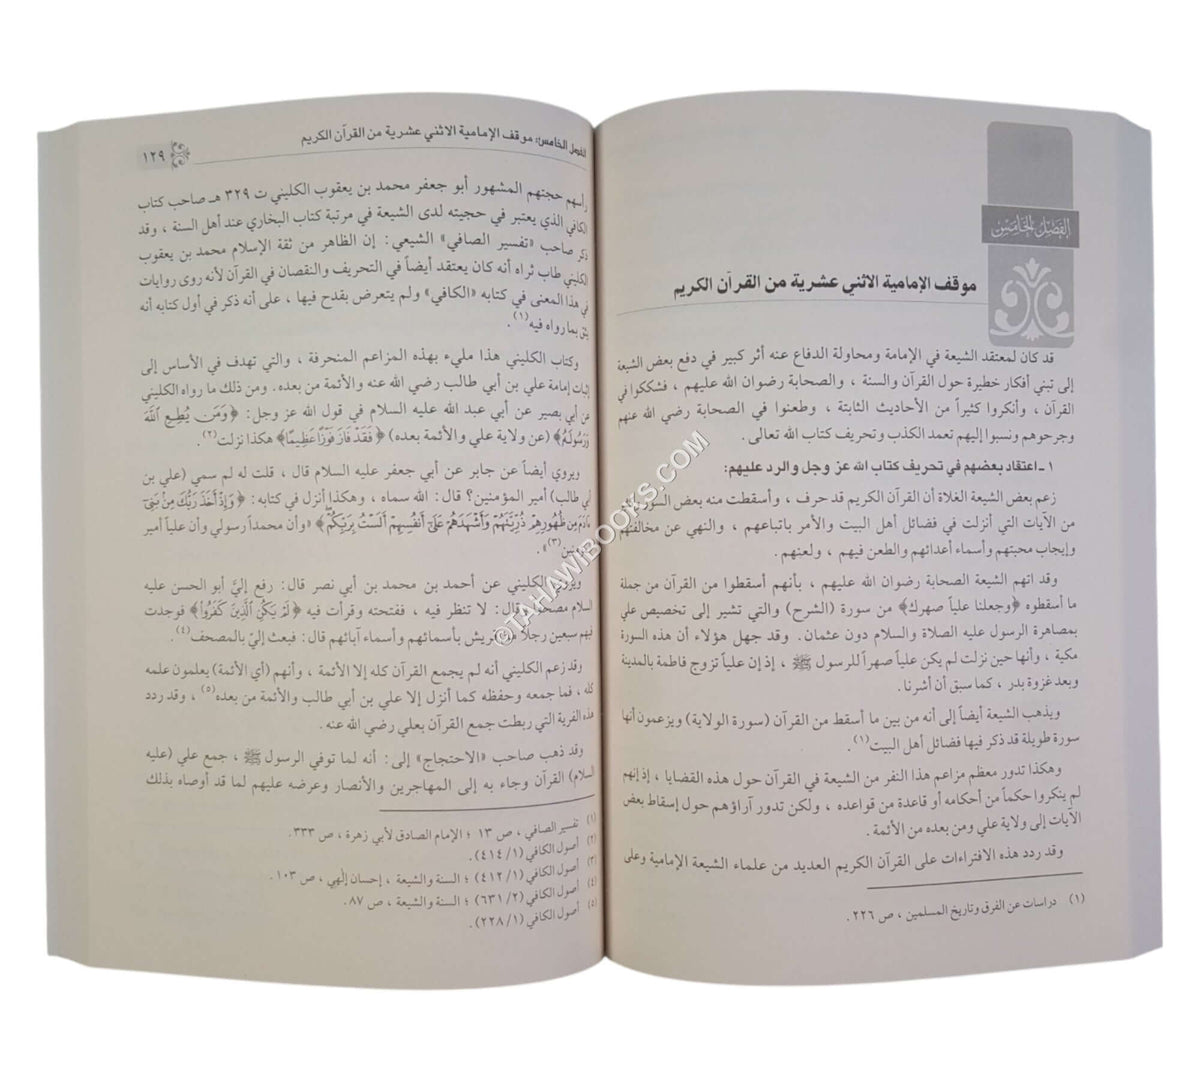 الفصل الخامس
موقف الإمامية الاثني عشرية من القرآن الكريم
قد كان لمعتقد الشيعة في الإمامة ومحاولة الدفاع عنه أثر كبير في دفع بعض الشيعة
إلى تبني أفكار خطيرة حول القرآن والسنة ، والصحابة رضوان الله عليهم ، فشككوا في
القرآن ، وأنكروا كثيراً من الأحاديث الثابتة ، وطعنوا في الصحابة رضي الله عنهم
وجرحوهم ونسبوا إليهم تعمد الكذب وتحريف كتاب الله تعالى .
١ ـ اعتقاد بعضهم في تحريف كتاب الله عز وجل والرد عليهم:
زعم بعض الشيعة الغلاة أن القرآن الكريم قد حرف ، وأسقطت منه بعض السور
من الآيات التي أنزلت في فضائل أهل البيت والأمر باتباعهم ، والنهي عن مخالفتهم
وإيجاب محبتهم وأسماء أعدائهم والطعن فيهم ، ولعنهم .
وقد اتهم الشيعة الصحابة رضوان الله عليهم ، بأنهم أسقطوا من القرآن من جملة
ما أسقطوه ﴿وجعلنا علياً صهرك﴾ من سورة (الشرح) والتي تشير إلى تخصيص علي
بمصاهرة الرسول عليه الصلاة والسلام دون عثمان . وقد جهل هؤلاء أن هذه السورة
مكية ، وأنها حين نزلت لم يكن علياً صهراً للرسول ﷺ ، إذ إن علياً تزوج فاطمة بالمدينة
وبعد غزوة بدر ، كما سبق أن أشرنا .
ويذهب الشيعة أيضاً إلى أنه من بين ما أسقط من القرآن (سورة الولاية) ويزعمون أنها
سورة طويلة قد ذكر فيها فضائل أهل البيت(١) .
وهكذا تدور معظم مزاعم هذا النفر من الشيعة في القرآن حول هذه القضايا ، إذ إنهم
لم ينكروا حكماً من أحكامه أو قاعدة من قواعده ، ولكن تدور آراؤهم حول إسقاط بعض
الآيات إلى ولاية علي ومن بعده من الأئمة .
وقد ردد هذه الافتراءات على القرآن الكريم العديد من علماء الشيعة الإمامية وعلى
(١) دراسات عن الفرق وتاريخ المسلمين ، ص ٢٢٦ .
الفصل الخامس: موقف الإمامية الاثني عشرية من القرآن الكريم
١٢٩
رأسهم حجتهم المشهور أبو جعفر محمد بن يعقوب الكليني ت ٣٢٩ هـ صاحب كتاب
الكافي الذي يعتبر في حجيته لدى الشيعة في مرتبة كتاب البخاري عند أهل السنة ، وقد
ذكر صاحب «تفسير الصافي» الشيعي: إن الظاهر من ثقة الإسلام محمد بن يعقوب
الكليني طاب ثراه أنه كان يعتقد أيضاً في التحريف والنقصان في القرآن لأنه روى روايات
في هذا المعنى في كتابه «الكافي» ولم يتعرض بقدح فيها ، على أنه ذكر في أول كتابه أنه
يثق بما رواه فيه(١) .
وكتاب الكليني هذا مليء بهذه المزاعم المنحرفة ، والتي تهدف في الأساس إلى
إثبات إمامة علي بن أبي طالب رضي الله عنه والأئمة من بعده. ومن ذلك ما رواه الكليني
عن أبي بصير عن أبي عبد الله عليه السلام في قول الله عز وجل: ﴿وَمَن يُطِعِ اللَّهَ
وَرَسُولَهُ﴾ (عن ولاية علي والأئمة بعده) ﴿فَقَدْ فَازَ فَوْزًا عَظِيمًا﴾ هكذا نزلت(٢).
ويروي أيضاً عن جابر عن أبي جعفر عليه السلام قال ، قلت له لم سمي (علي بن
أبي طالب) أمير المؤمنين؟ قال: الله سماه ، وهكذا أنزل في كتابه: ﴿وَإِذْ أَخَذَ رَبُّكَ مِنْ بَنِي
آدَمَ مِن ظُهُورِهِمْ ذُرِّيَّتَهُمْ وَأَشْهَدَهُمْ عَلَى أَنفُسِهِمْ أَلَسْتُ بِرَبِّكُمْ﴾ «وأن محمداً رسولي وأن علياً أمير
(٣)» .
ويروي الكليني عن أحمد بن محمد بن أبي نصر قال: رفع إليَّ أبو الحسن عليه
السلام مصحفاً وقال: لا تنظر فيه ، ففتحته وقرأت فيه ﴿لَمْ يَكُنِ الَّذِينَ كَفَرُوا﴾ فوجدت
فيهم سبعين رجلاً من قريش بأسمائهم وأسماء آبائهم قال: فبعث إليّ بالمصحف(٤).
وقد زعم الكليني أنه لم يجمع القرآن كله إلا الأئمة ، وأنهم (أي الأئمة) يعلمون علمه
كله ، فما جمعه وحفظه كما أنزل إلا علي بن أبي طالب والأئمة من بعده(٥) ، وقد ردد
هذه الفرية التي ربطت جمع القرآن بعلي رضي الله عنه .
وقد ذهب صاحب «الاحتجاج» إلى: أنه لما توفي الرسول ﷺ ، جمع علي (عليه
السلام) القرآن وجاء به إلى المهاجرين والأنصار وعرضه عليهم لما قد أوصاه بذلك
(١) تفسير الصافي ، ص ١٣ ؛ الإمام الصادق لأبي زهرة ، ص ٣٣٣ .
(٢) أصول الكافي (١/٤١٤) .
(٣) أصول الكافي (١/٤١٢) ؛ السنة والشيعة ، إحسان إلهي ، ص ١٠٣ .
(٤) أصول الكافي (٢/٦٣١) ؛ السنة والشيعة ، ص ٨٧ .
(٥) أصول الكافي (١/٢٢٨) .
©TAHAWIBOOKS.COM